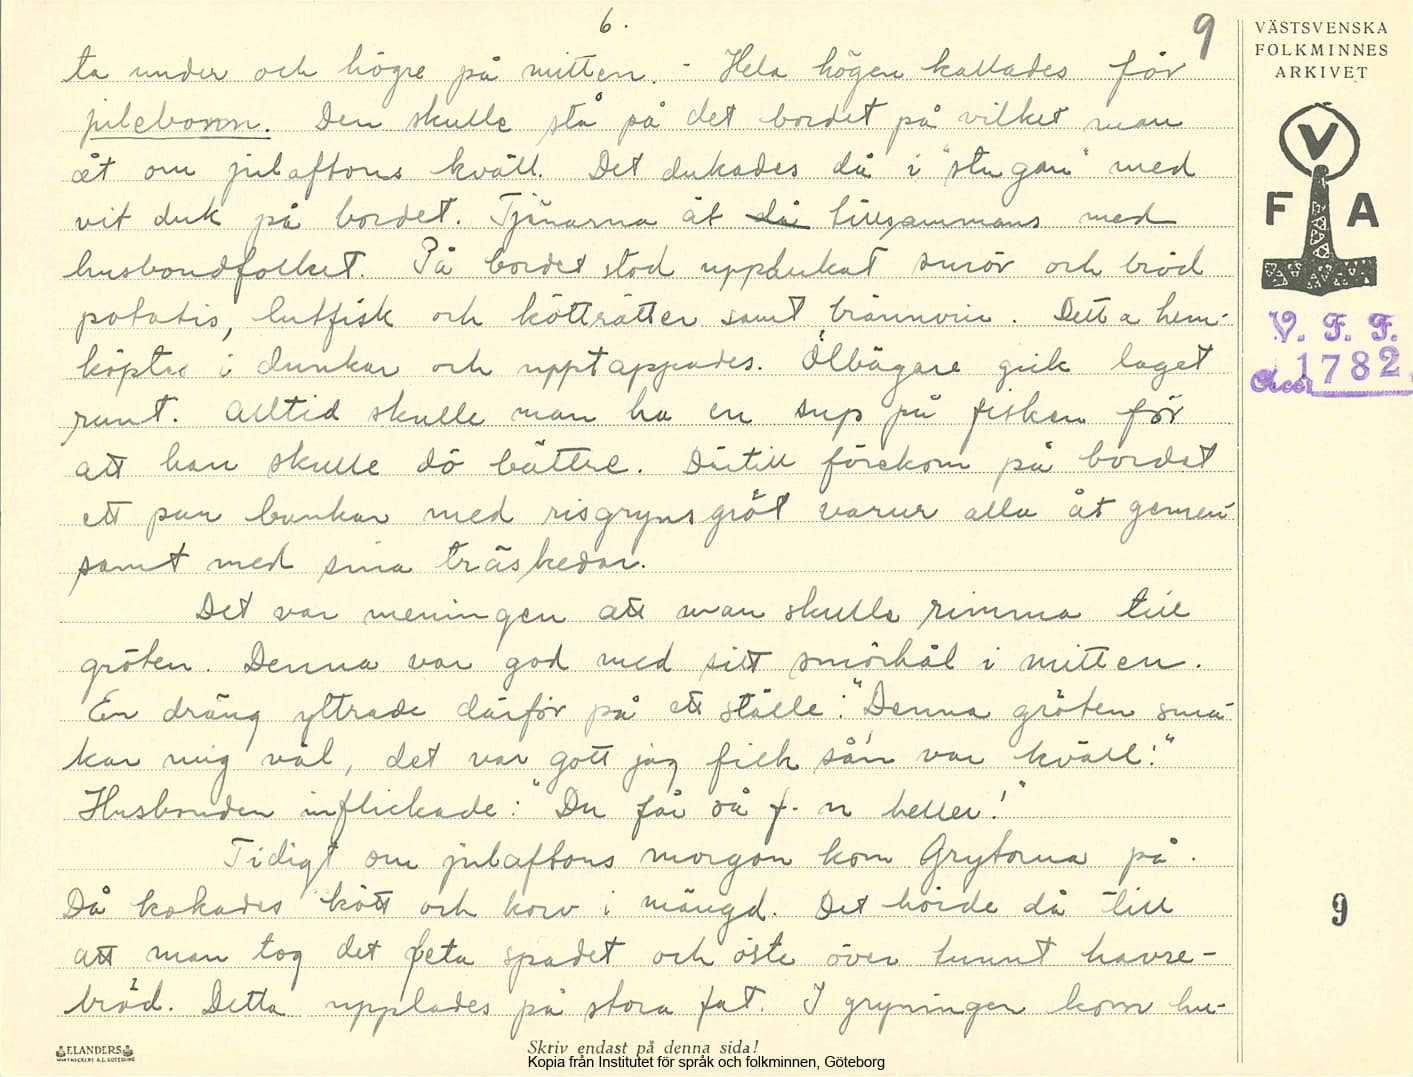 6.
9
VÄSTSVENSKA
FOLKMINNES
ARKIVET
ta under och högre på mitten. - Hela högen kallades för
julebonn. Den skulle stå på det bordet på vilket man
åt om julaftons kväll. Det dukades då i "stugan" med
vit duk på bordet. Tjänarna åt då tillsammans med
husbondfolket. På bordet stod uppdukat smör och bröd
potatis, lutfisk och kötträtter samt brännvin. Detta hem-
köptes i dunkar och upptappades. Ölbägare gick laget
runt. Alltid skulle man ha en sup på fisken för
att han skulle dö bättre. Därtill förekom på bordet
ett par bunkar med risgrynsgröt varur alla åt gemen-
samt med sina träskedar.
Det var meningen att man skulle rimma till
gröten. Denna var god med sitt smörhål i mitten.
En dräng yttrade därför på ett ställe: "Denna gröten sma-
kar mig väl, det var gott jag fick så'n var kväll!"
Husbonden inflickade: "Du får då f-n heller!"
Tidigt om julaftons morgon kom Grytorna på.
Då kokades kött och korv i mängd. Det hörde då till
att man tog det feta spadet och öste över tunnt havre-
bröd. Detta upplades på stora fat. I gryningen kom hu-
V
F A
V. F. F.
Acc. 1782
9
ELANDERS
Skriv endast på denna sida!
Kopia från Institutet för språk och folkminnen, Göteborg